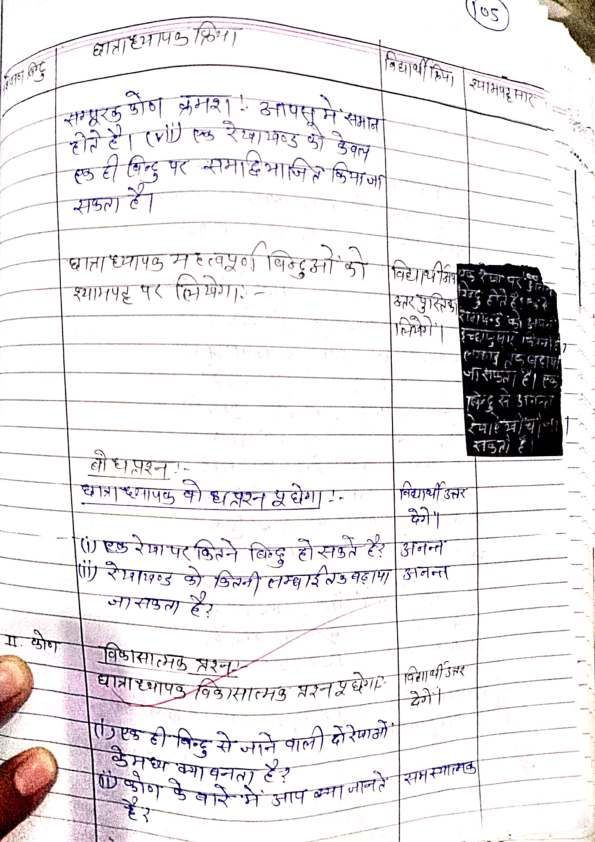 105
छात्राध्यापक क्रिया
विद्यार्थी क्रिया
श्यामपट्ट सार
बिन्दु
सम्पूरक कोण क्रमश:- आपस मे समान
होते है। (vii) एक रेखाखण्ड को केवल
एक ही बिन्दु पर समद्विभाजित किया जा
सकता है।
छात्राध्यापक महत्वपूर्ण बिन्दुओं को
श्यामपट्ट पर लिखेगा:-
विद्यार्थी
उत्तर पुस्तिका
लिखेगे।
एक रेखा पर अनन्त
बिन्दु होते है। एक
रेखाखण्ड को अपनी
इच्छानुसार कितनी ही
लम्बाई तक बढ़ाया
जा सकता है। एक
बिन्दु से अनन्त
रेखाएं खींची जा
सकती है।
बोध प्रश्न:-
छात्राध्यापक बोध प्रश्न पूछेगा:-
विद्यार्थी उत्तर
देगे।
(i) एक रेखा पर कितने बिन्दु हो सकते है? अनन्त
(ii) रेखाखण्ड को कितनी लम्बाई तक बढ़ाया अनन्त
जा सकता है?
II. कोण
विकासात्मक प्रश्न:-
छात्राध्यापक विकासात्मक प्रश्न पूछेगा:-
विद्यार्थी उत्तर
देगे।
(i) एक ही बिन्दु से जाने वाली दो रेखाओं
के मध्य क्या बनता है?
(ii) कोण के बारे में आप क्या जानते समस्यात्मक
है?